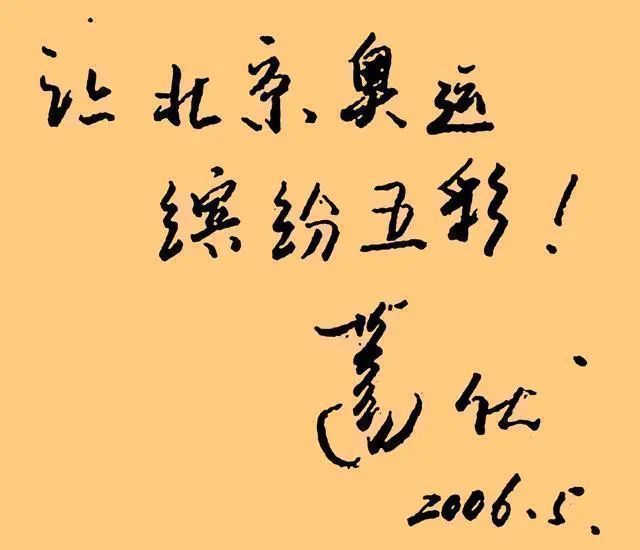 让北京奥运
缤纷五彩！
葛优
2006.5.